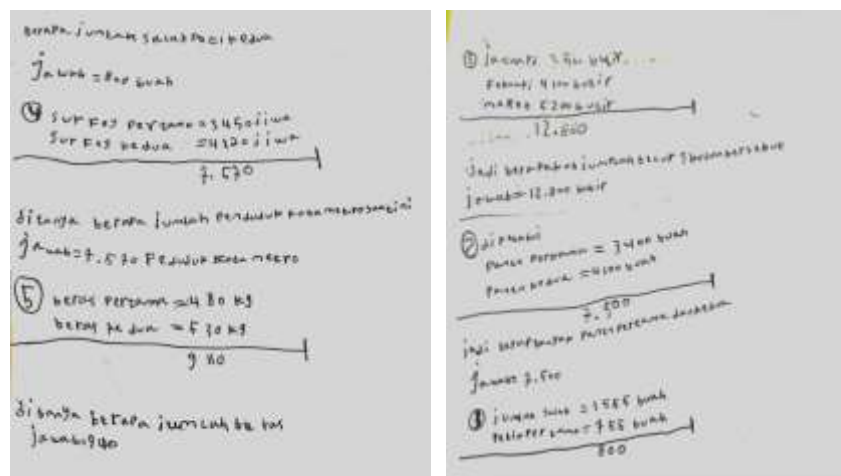 berapa jumlah salak Peti kedua
jawab = 800 buah
④ Sur Fey pertama = 3450 jiwa
Sur Fey kedua = 4120 jiwa
7.570
ditanya berapa jumlah Penduduk kota metro saat ini
jawab = 7.570 Penduduk kota metro
⑤ beras pertama = 480 kg
beras ke dua = 530 kg
980
ditanya berapa jumlah be ras
jawab 940
① januari
12.800
jadi berapakah jumlah telur 3 bulan tersebut
jawab = 12.800 butir
② diketahui
panen pertama = 3400 buah
panen kedua = 4100 buah
7.500
jadi panen pertama dan kedua
jawab 7.500
③ jumlah salak = 1555 buah
pertama = 755 buah
800